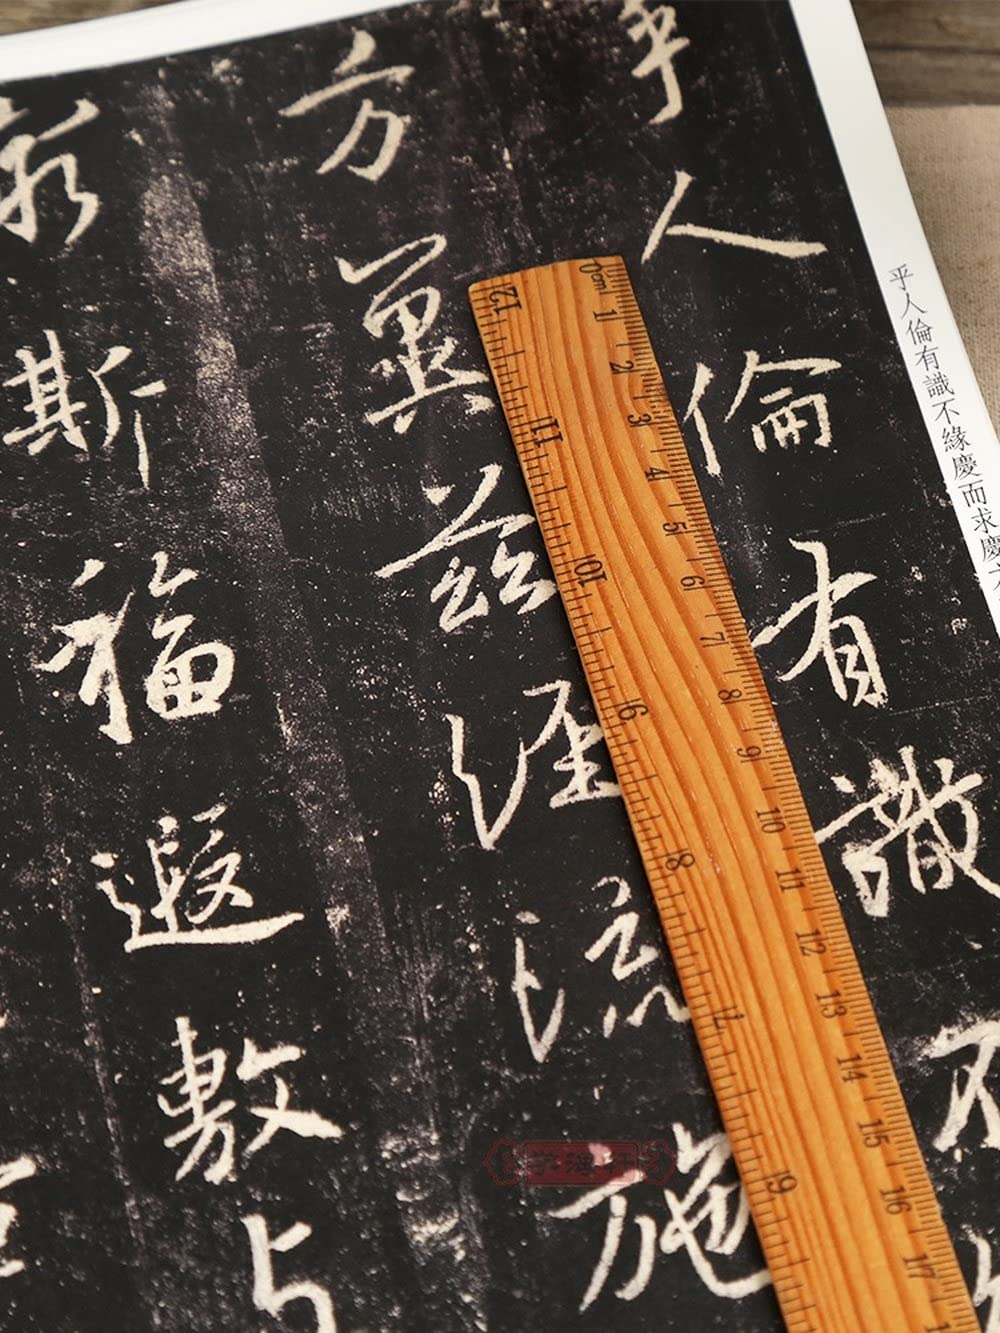 乎人倫有識不緣慶而求慶
乎人倫有識不
方冀茲經流施
窮斯福遐敷与
0cm 1 2 3 4 5 6 7 8 9 10 11 12 13 14 15 16 17
12 11 10 9 8 7 6